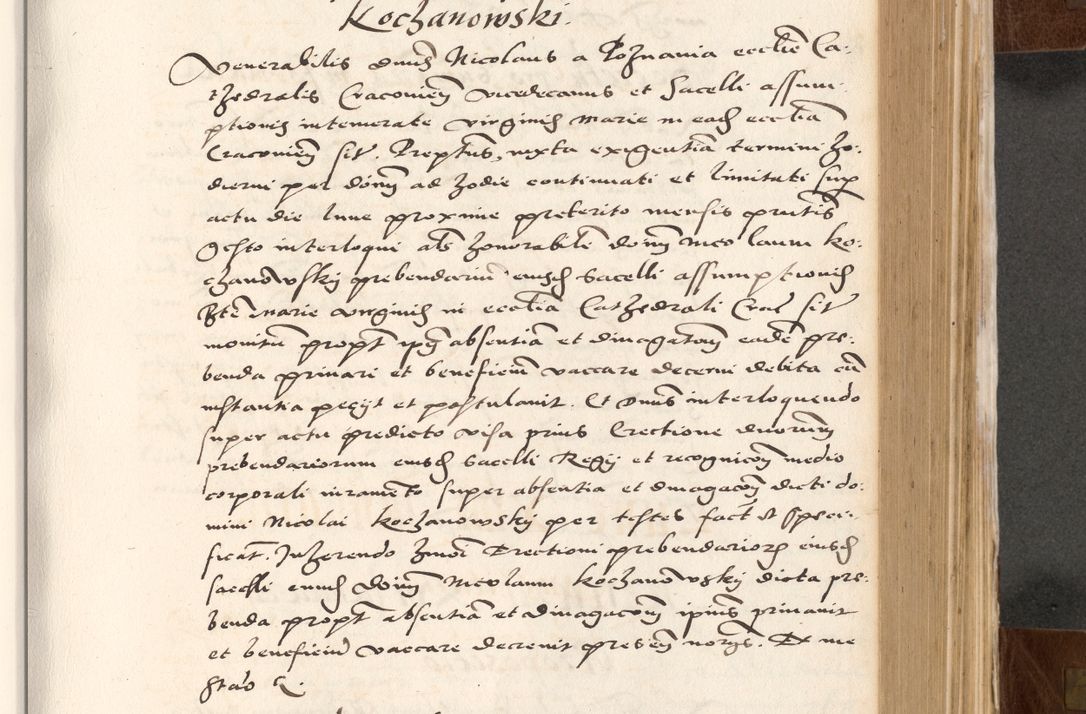 Kochanowski.
Venerabilis dnus Nicolaus a Poznania ecclie Ca-
thedralis Cracovien vicedecanus et Sacelli assum-
ptionis intemerate virginis Marie in eadem ecclia
Cracovien sit. Preptus, iuxta exigentia termini ho-
dierni per donum ad hodie continuati et limitati sup
actu die lune proxime preterito mensis pntis
interloqui als honorabile donum Nicolaum Ko-
chanowskij prebendariu eiusdem Sacelli assumptionis
Bte Marie virginis in ecclia Cathedrali Crac sit
monitum propt ipm absentia et divagatom eade pre-
benda privari et beneficium vaccare decerni debita cu
instantia petijt et postulavit. Et Dnus interloquendo
super actu predicto visa prius Erectione duorum
prebendariorum eiusdem Sacelli Regij et recognicom medio
corporali iuramento super absentia et divagacom dicti do-
mini Nicolai Kochanowskij per testes fact et speci-
ficat. Inherendo hmoi Erectioni prebendarior eiusdem
sacelli eundem donum Nicolaum Kochanowskij dicta pre-
benda propt absentia et divagacom ipius privavit
et beneficiu vaccare decrevit presen